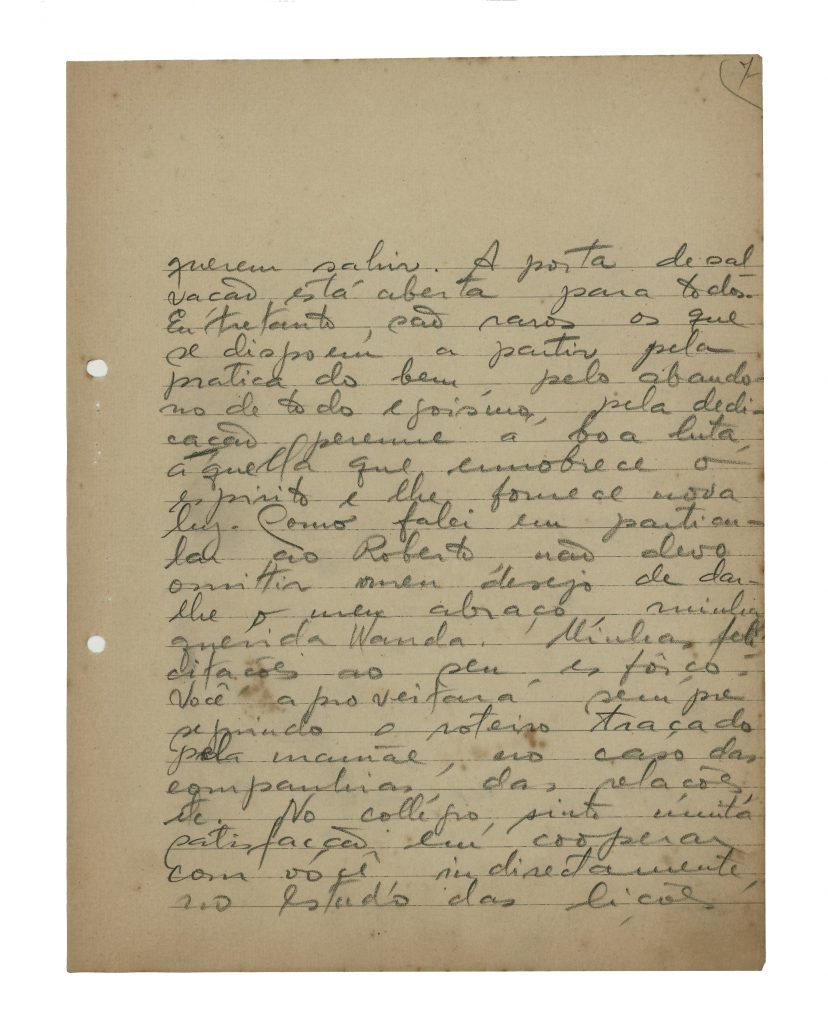 7
querem sahir. A porta de sal
vação está aberta para todos.
Entretanto, são raros os que
se dispoem a partir pela
pratica do bem, pelo abando-
no de todo egoismo, pela dedi-
cação perenne á boa luta,
áquella que ennobrece o
espirito e lhe fornece nova
luz. Como falei em particu-
lar ao Roberto não devo
omittir o meu desejo de dar-
lhe o meu abraço, minha
querida Wanda. Minhas feli-
citações ao seu esfôrço.
Você aproveitará sempre
seguindo o roteiro traçado
pela mamãe, no caso das
companhias, das relações,
etc. No collégio, sinto muita
satisfacção em cooperar
com você, indirectamente,
no estudo das lições